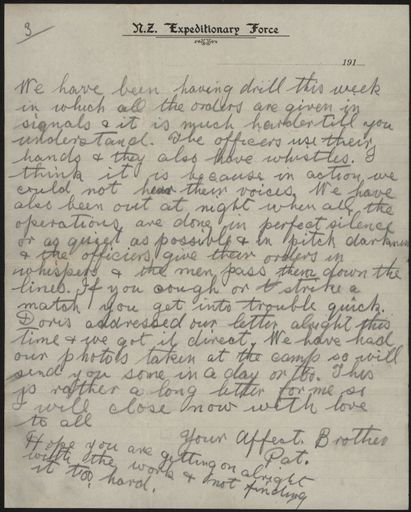 3
N.Z. Expeditionary Force
191
We have been having drill this week
in which all the orders are given in
signals & it is much harder till you
understand. The officers use their
hands & they also have whistles. I
think it is because in action we
could not hear their voices. We have
also been out at night when all the
operations are done in perfect silence
or as quiet as possible & in pitch darkness
& the officers give their orders in
whispers & the men pass them down the
lines. If you cough or strike a
match you get into trouble quick.
Doris addressed our letter alright this
time & we got it direct. We have had
our photos taken at the camp so will
send you some in a day or too. This
is rather a long letter for me so
I will close now with love
to all
Your Affect. Brother
Pat.
Hope you are getting on alright
with the work & not finding
it too hard.